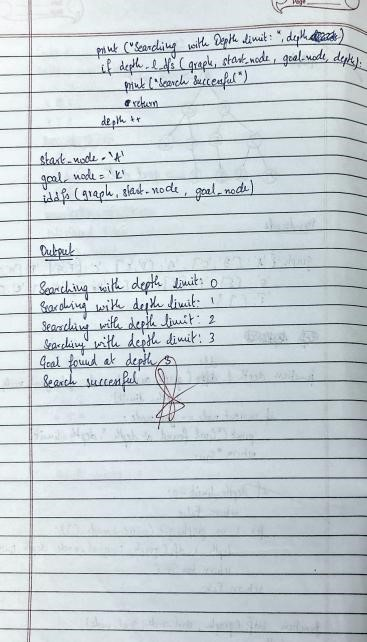 Page
print ("Searching with Depth limit: ", depth)
if depth_l_dfs (graph, start_node, goal_node, depth):
print ("Search Successful")
return
depth ++
start_node = 'A'
goal_node = 'K'
iddfs (graph, start_node, goal_node)
Output
Searching with depth limit: 0
Searching with depth limit: 1
Searching with depth limit: 2
Searching with depth limit: 3
Goal found at depth 3
Search successful